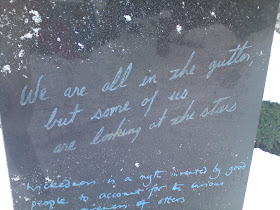 We are all in the gutter,
but some of us
are looking at the stars
Wickedness is a myth invented by good
people to account for the curious
attractiveness of others